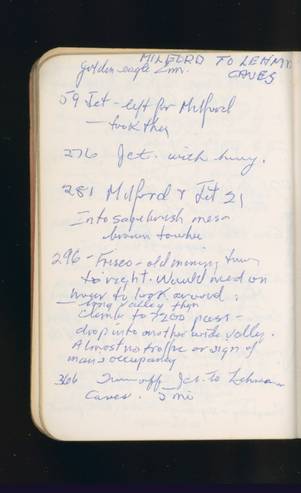 MILFORD TO LEHMAN
CAVES
golden eagle 2 mi.
59 Jct - left for Milford
276 Jct. with hwy.
281 Milford & Jct 21
Into sagebrush mesa
brown
296 - Frisco - old mining town
to right. Would need an
hour to look around.
- long valley then
climb to 7200 pass -
drop into another wide valley.
Almost no traffic or sign of
man's occupancy
366 Turnoff Jct. to Lehman
Caves. 5 mi